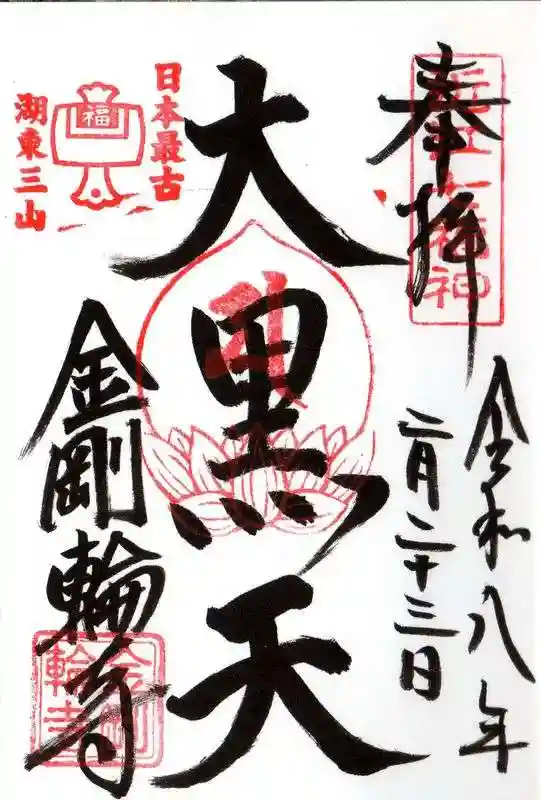 奉拝
近江七福神
令和八年
二月二十三日
大黒天
日本最古
湖東三山
福
金剛輪寺
金剛
輪寺